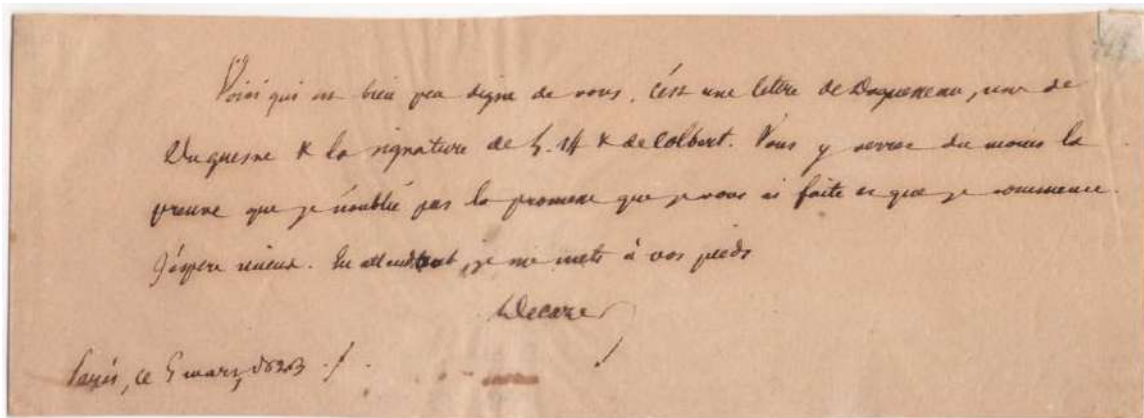 Voici qui est bien peu digne de vous. C'est une lettre de Daguesseau, une de
Duquesne & la signature de L. 14 & de Colbert. Vous y verrez du moins la
preuve que je n'oublie pas la promesse que je vous ai faite et que je commence.
J'espère mieux. En attendant, je me mets à vos pieds
Decazes
Paris, ce 5 mars, 1823